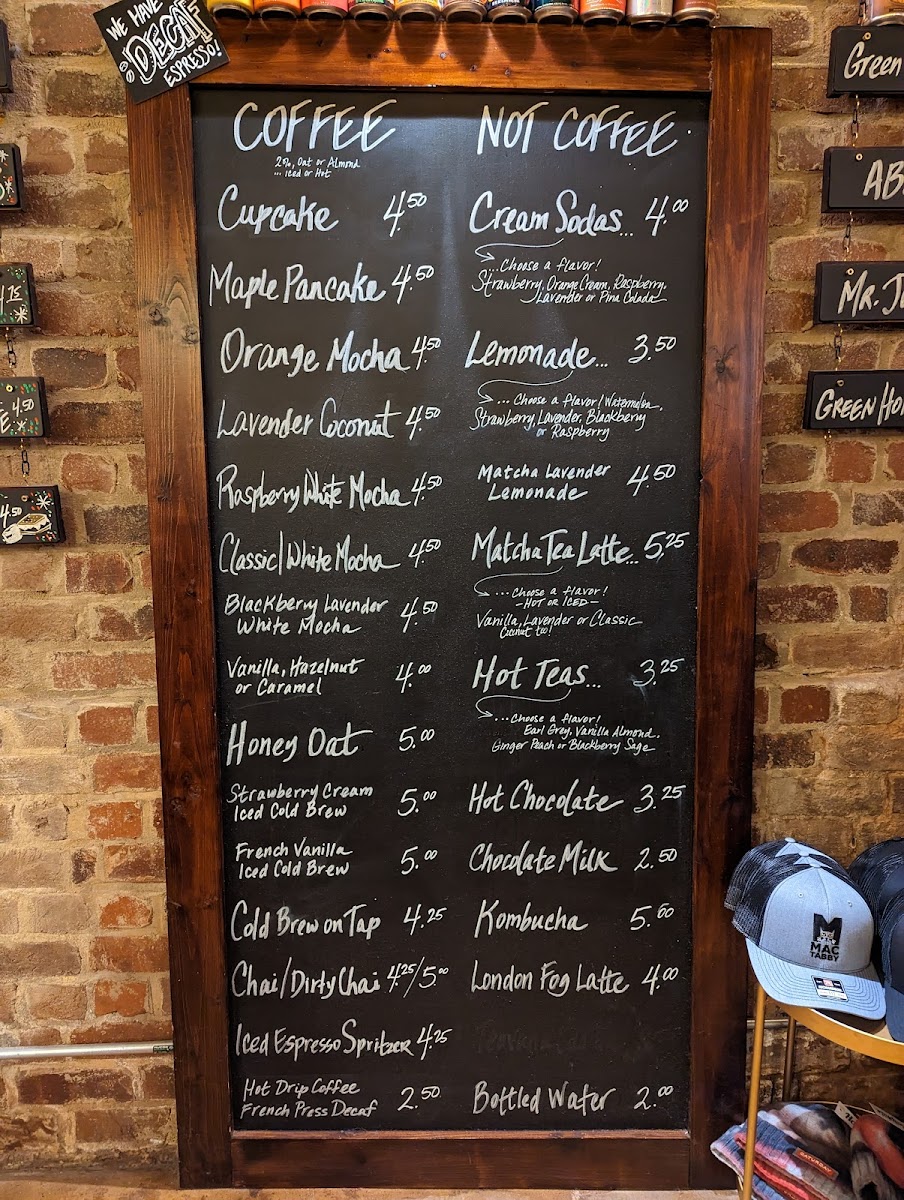 WE HAVE
DECAF
ESPRESSO!
COFFEE
2%, Oat or Almond
... Iced or Hot
Cupcake 4.50
Maple Pancake 4.50
Orange Mocha 4.50
Lavender Coconut 4.50
Raspberry White Mocha 4.50
Classic/White Mocha 4.50
Blackberry Lavender
White Mocha 4.50
Vanilla, Hazelnut
or Caramel 4.00
Honey Oat 5.00
Strawberry Cream
Iced Cold Brew 5.00
French Vanilla
Iced Cold Brew 5.00
Cold Brew on Tap 4.25
Chai/Dirty Chai 4.25/5.00
Iced Espresso Spritzer 4.25
Hot Drip Coffee
French Press Decaf 2.50
NOT COFFEE
Cream Sodas... 4.00
...Choose a flavor!
Strawberry, Orange Cream, Raspberry,
Lavender or Pina Colada
Lemonade... 3.50
... Choose a flavor! Watermelon,
Strawberry, Lavender, Blackberry
or Raspberry
Matcha Lavender
Lemonade 4.50
Matcha Tea Latte... 5.25
... Choose a flavor!
-HOT or ICED-
Vanilla, Lavender or Classic
Coconut too!
Hot Teas... 3.25
...Choose a flavor!
Earl Grey, Vanilla Almond,
Ginger Peach or Blackberry Sage
Hot Chocolate 3.25
Chocolate Milk 2.50
Kombucha 5.00
London Fog Latte 4.00
Bottled Water 2.00
Green
AB
Mr. J
GREEN HOR
4.75
4.50
4.50
MAC
TABBY
SATURDAY